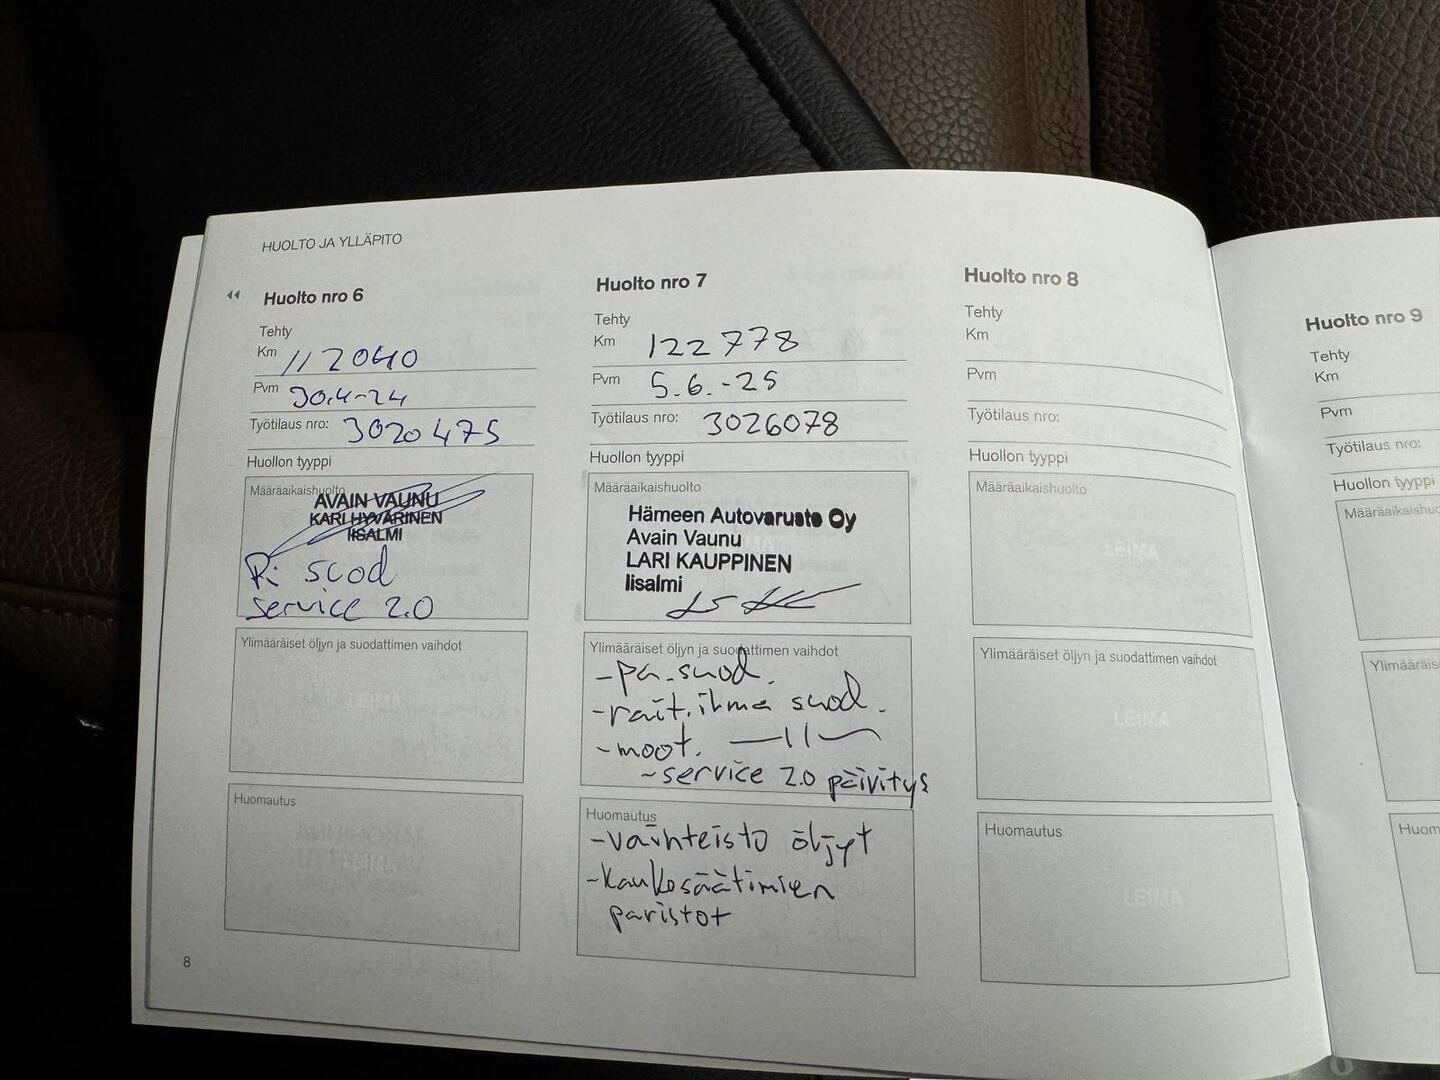 HUOLTO JA YLLÄPITO
Huolto nro 6
Tehty
Km 112040
Pvm 30.4-24
Työtilaus nro: 3020475
Huollon tyyppi
Määräaikaishuolto
AVAIN VAUNU
KARI HYVÄRINEN
IISALMI
Ri suod
service 2.0
Ylimääräiset öljyn ja suodattimen vaihdot
LEIMA
Huomautus
8
Huolto nro 7
Tehty
Km 122778
Pvm 5.6.-25
Työtilaus nro: 3026078
Huollon tyyppi
Määräaikaishuolto
Hämeen Autovaruste Oy
Avain Vaunu
LARI KAUPPINEN
Iisalmi
Ylimääräiset öljyn ja suodattimen vaihdot
-pa.suod.
-rait.ilma suod.
-moot. —11—
-service 2.0 päivitys
Huomautus
-vaihteisto öljyt
-kaukosäätimien
paristot
Huolto nro 8
Tehty
Km
Pvm
Työtilaus nro:
Huollon tyyppi
Määräaikaishuolto
LEIMA
Ylimääräiset öljyn ja suodattimen vaihdot
LEIMA
Huomautus
LEIMA
Huolto nro 9
Tehty
Km
Pvm
Työtilaus nro:
Huollon tyyppi
Määräaikaishuo
Ylimääräise
Huom